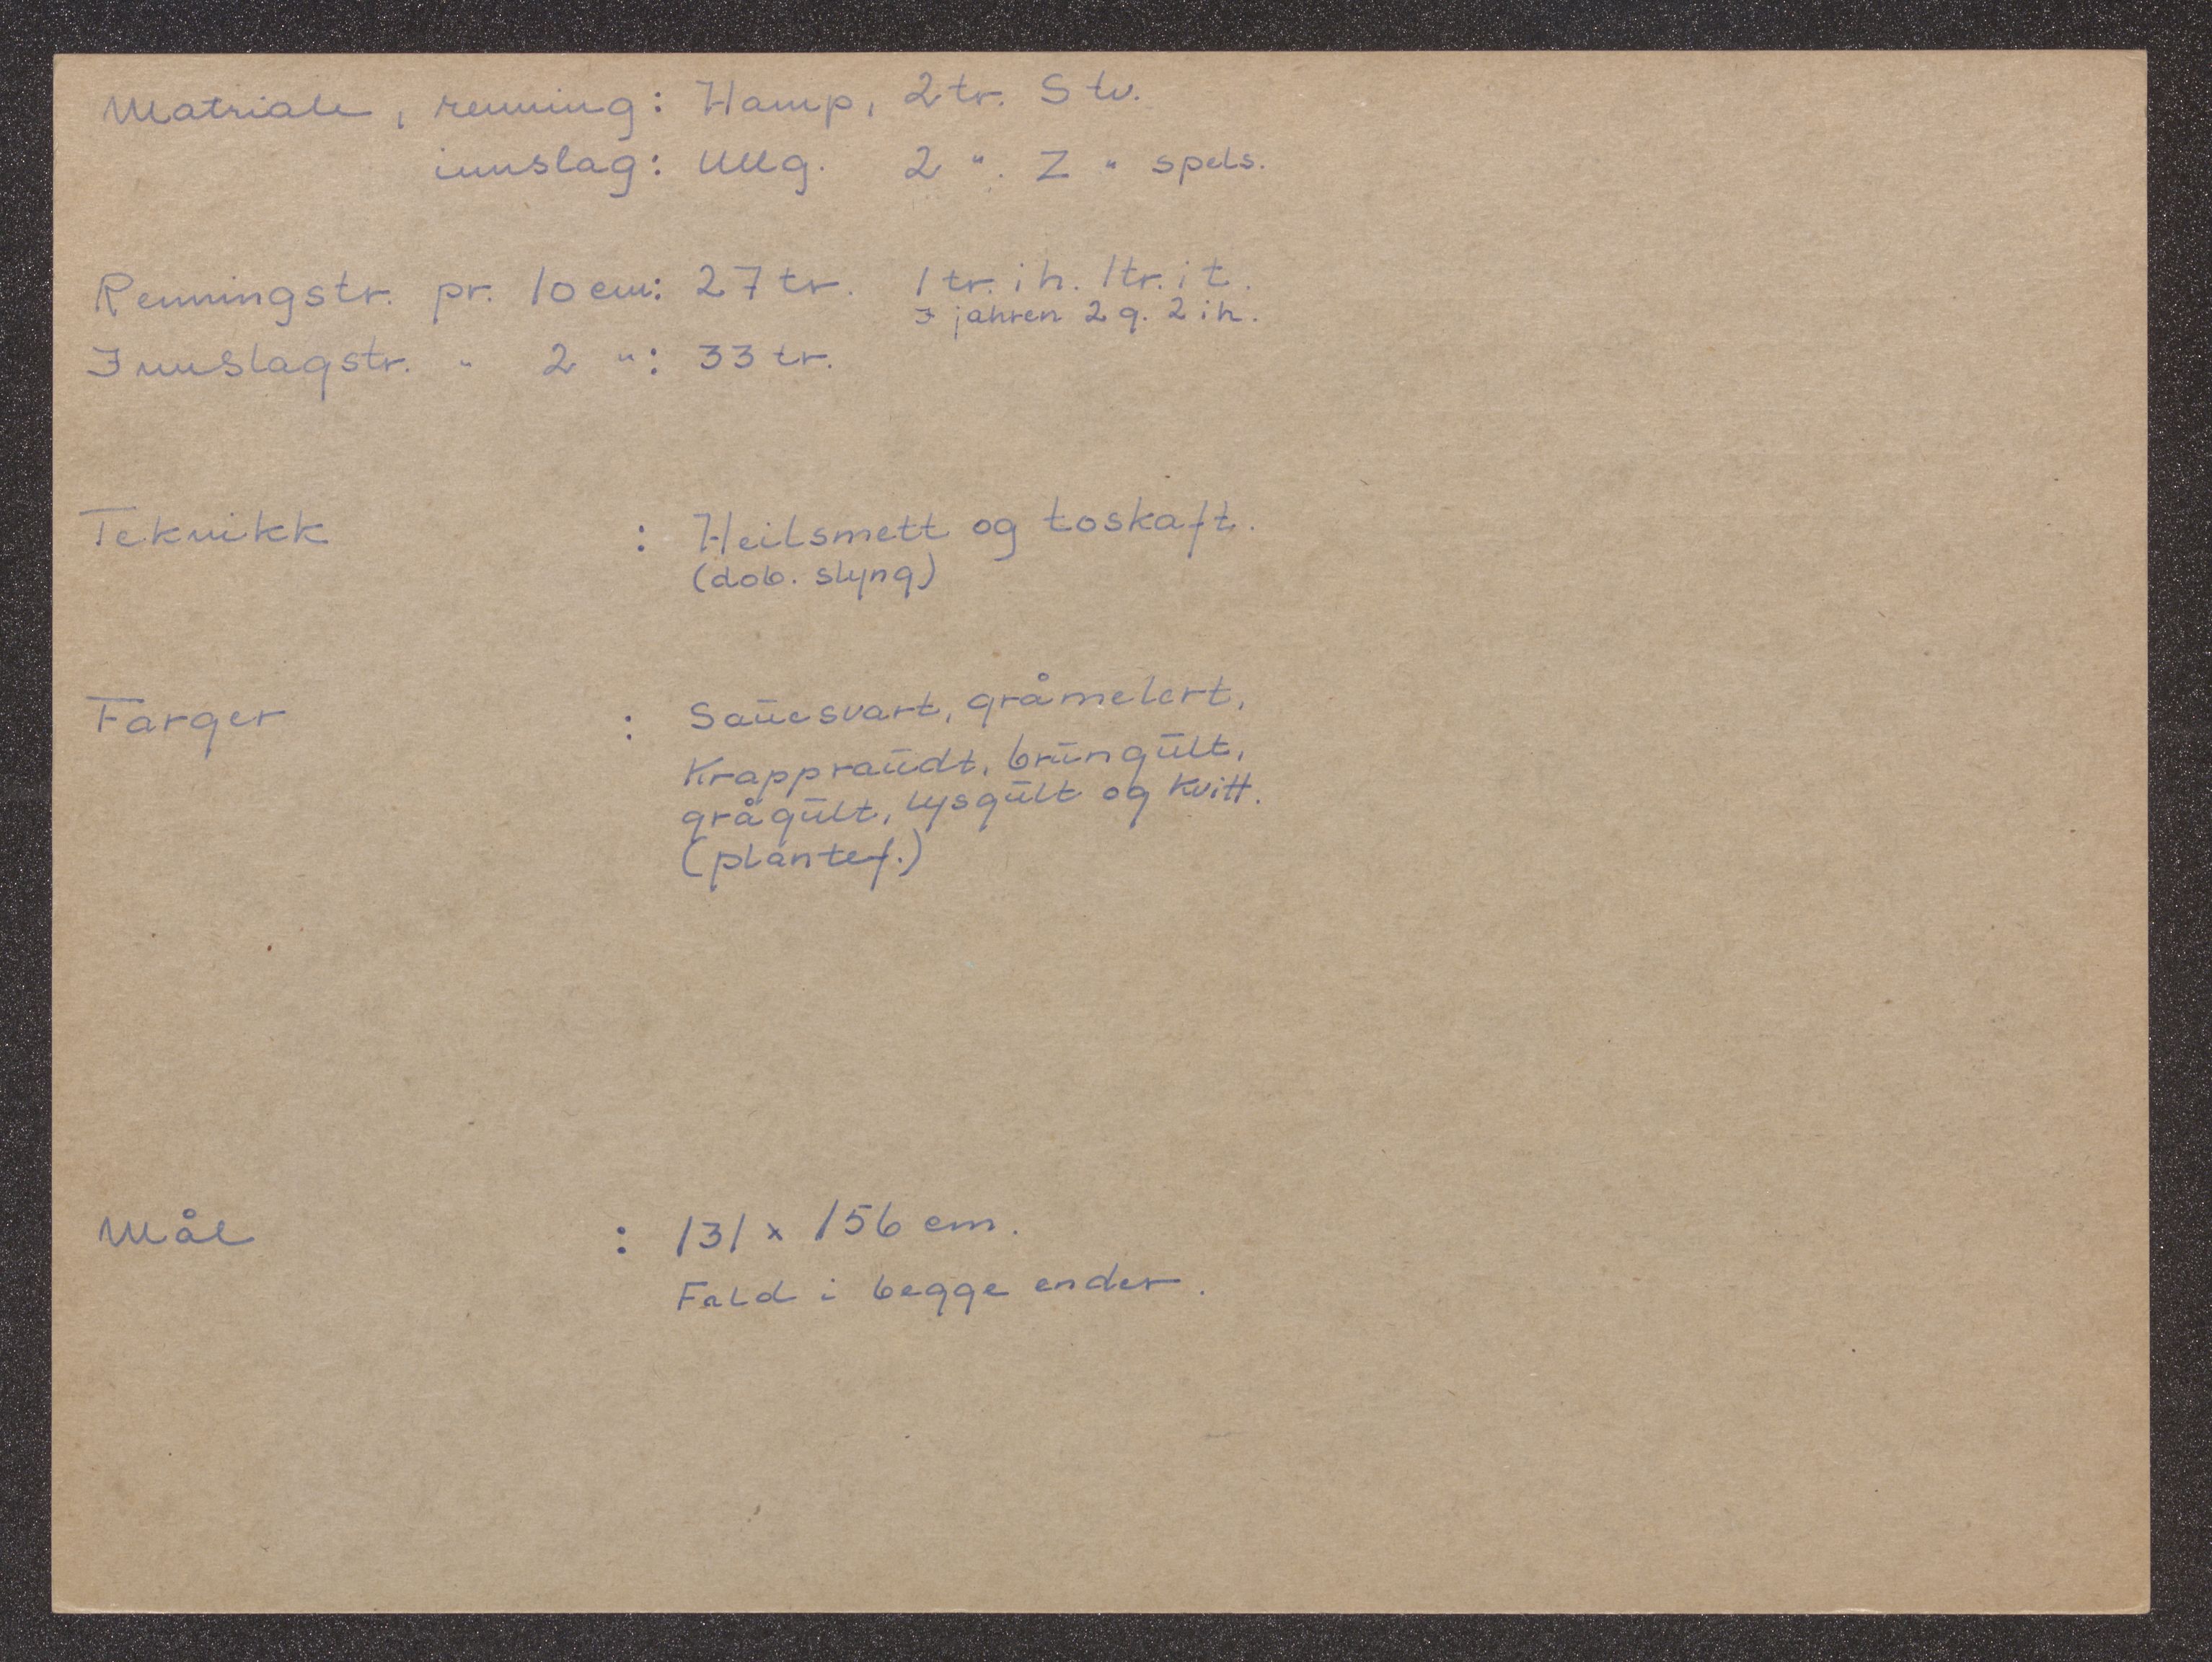 Matriale, renning: Hamp, 2 tr. S tv.
innslag: Ullg. 2 ". Z " spels.
Renningstr. pr. 10 cm: 27 tr. 1 tr. i h. 1 tr. i t.
I jahren 2 g. 2 i h.
Innslagstr. " 2 ": 33 tr.
Teknikk : Heilsmett og toskaft.
(dob. slyng)
Farger : Sauesvart, gråmelert,
Krappraudt, brungult,
grågult, lysgult og kvitt.
(plantef.)
Mål : 131 x 156 cm.
Fald i begge ender.